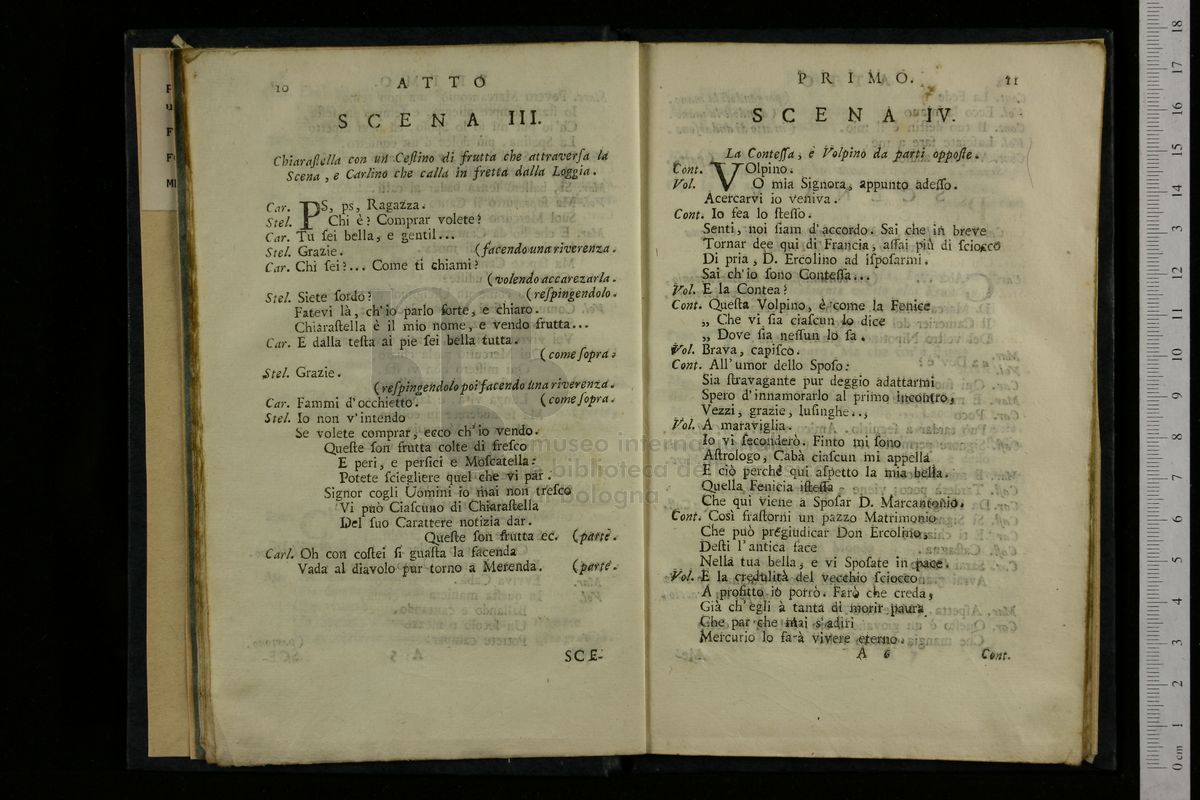 10 ATTO
SCENA III.
Chiaraſtella con un Ceſtino di frutta che attraverſa la
Scena, e Carlino che calla in fretta dalla Loggia.
Car. PS, ps, Ragazza.
Stel. Chi è? Comprar volete?
Car. Tu ſei bella, e gentil...
Stel. Grazie. (facendo una riverenza.
Car. Chi ſei?... Come ti chiami?
(volendo accarezarla.
Stel. Siete ſordo? (reſpingendolo.
Fatevi là, ch'io parlo forte, e chiaro.
Chiaraſtella è il mio nome, e vendo frutta...
Car. E dalla teſta ai pie ſei bella tutta.
(come ſopra.
Stel. Grazie.
(reſpingendolo poi facendo una riverenza.
Car. Fammi d'occhietto. (come ſopra.
Stel. Io non v'intendo
Se volete comprar, ecco ch'io vendo.
Queſte ſon frutta colte di freſco
E peri, e perſici e Moſcatella:
Potete ſciegliere quel che vi par.
Signor cogli Uomini io mai non treſco
Vi può Ciaſcuno di Chiaraſtella
Del ſuo Carattere notizia dar.
Queſte ſon frutta ec. (parte.
Carl. Oh con coſtei ſi guaſta la facenda
Vada al diavolo pur torno a Merenda. (parte.
SCE-
PRIMO. 11
SCENA IV.
La Conteſſa, e Volpino da parti oppoſte.
Cont. VOlpino.
Vol. O mia Signora, appunto adeſſo.
Acercarvi io veniva.
Cont. Io fea lo ſteſſo.
Senti, noi ſiam d'accordo. Sai che in breve
Tornar dee qui di Francia, aſſai più di ſciocco
Di pria, D. Ercolino ad iſpoſarmi.
Sai ch'io ſono Conteſſa...
Vol. E la Contea?
Cont. Queſta Volpino, è come la Fenice
„ Che vi ſia ciaſcun lo dice
„ Dove ſia neſſun lo ſa.
Vol. Brava, capiſco.
Cont. All'umor dello Spoſo:
Sia ſtravagante pur deggio adattarmi
Spero d'innamorarlo al primo incontro,
Vezzi, grazie, luſinghe..,
Vol. A maraviglia.
Io vi ſeconderò. Finto mi ſono
Aſtrologo, Cabà ciaſcun mi appella
E ciò perchè qui aſpetto la mia bella.
Quella Fenicia iſteſſa
Che qui viene a Spoſar D. Marcantonio.
Cont. Così fraſtorni un pazzo Matrimonio
Che può prégiudicar Don Ercolino,
Deſti l'antica face
Nella tua bella, e vi Spoſate in pace.
Vol. E la credulità del vecchio ſciocco
A profitto iò porrò. Farò che creda,
Già ch'egli à tanta di morir paura
Che par che mai s'adiri
Mercurio lo farà vivere eterno.
A 6 Cont.
museo interna
biblioteca de
bologna
18
17
16
15
14
13
12
11
10
9
8
7
6
5
4
3
2
1
0 cm